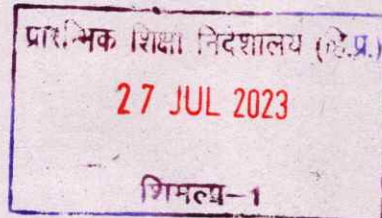 प्रारम्भिक शिक्षा निदेशालय (हि.प्र.)
27 JUL 2023
शिमला-1